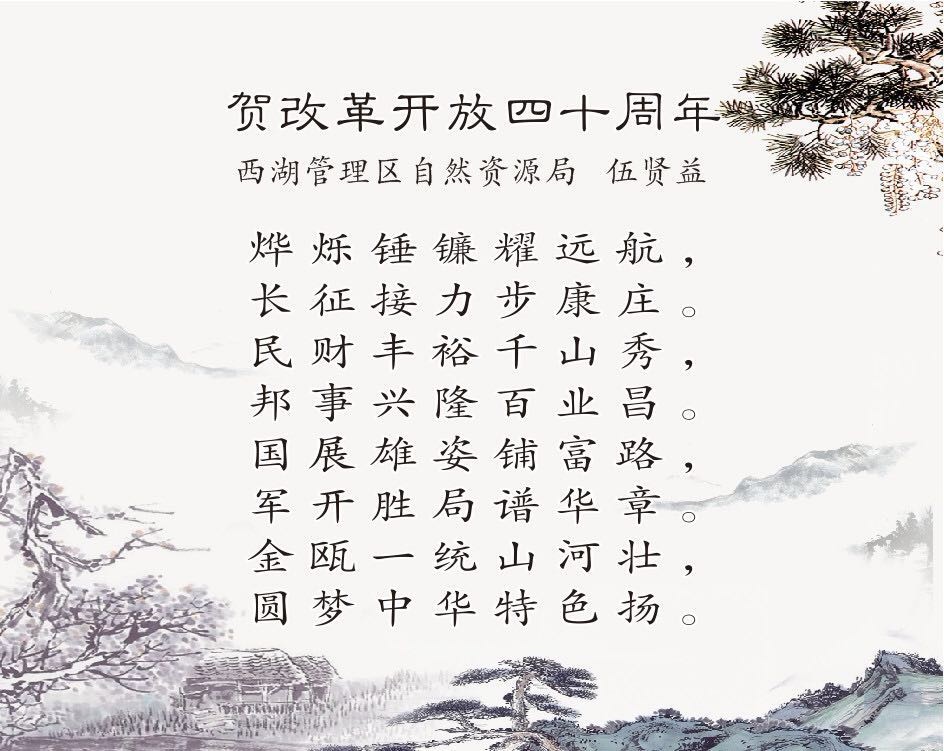 贺改革开放四十周年
西湖管理区自然资源局 伍贤益
烨烁锤镰耀远航，
长征接力步康庄。
民财丰裕千山秀，
邦事兴隆百业昌。
国展雄姿铺富路，
军开胜局谱华章。
金瓯一统山河壮，
圆梦中华特色扬。